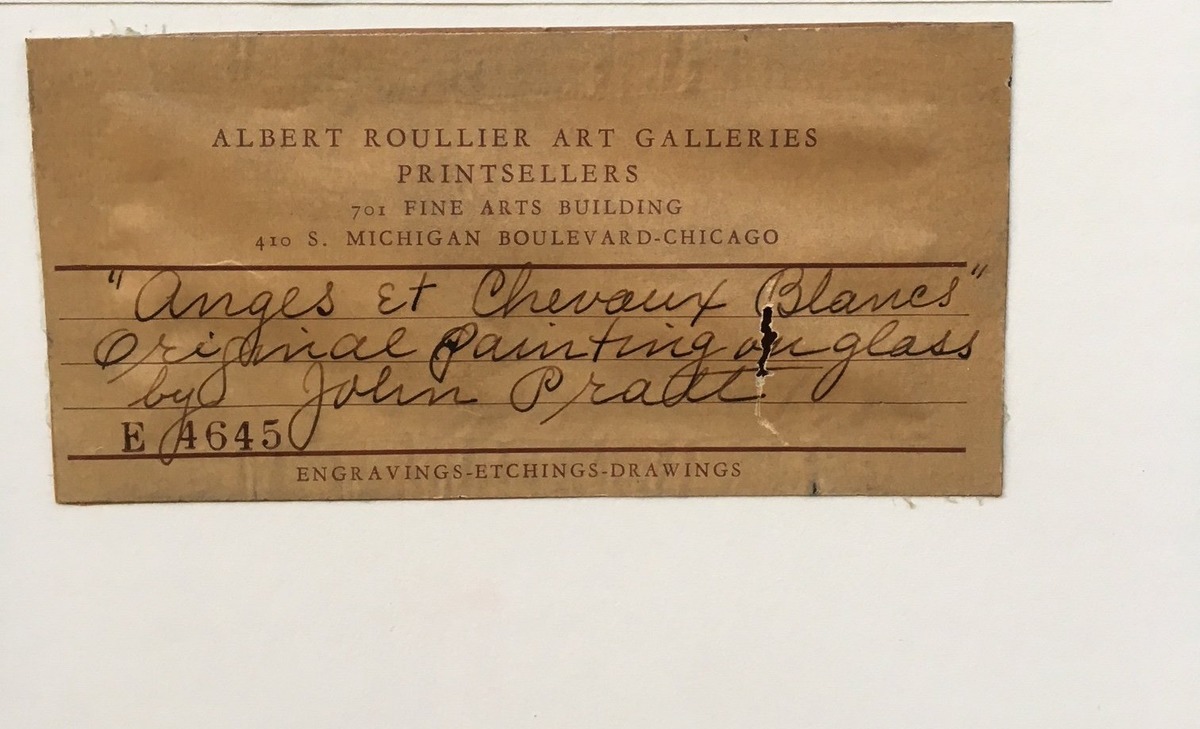 ALBERT ROULLIER ART GALLERIES
PRINTSELLERS
701 FINE ARTS BUILDING
410 S. MICHIGAN BOULEVARD-CHICAGO
"Anges Et Chevaux Blancs"
Original Painting on glass
by John Pratt
E 4645
ENGRAVINGS-ETCHINGS-DRAWINGS